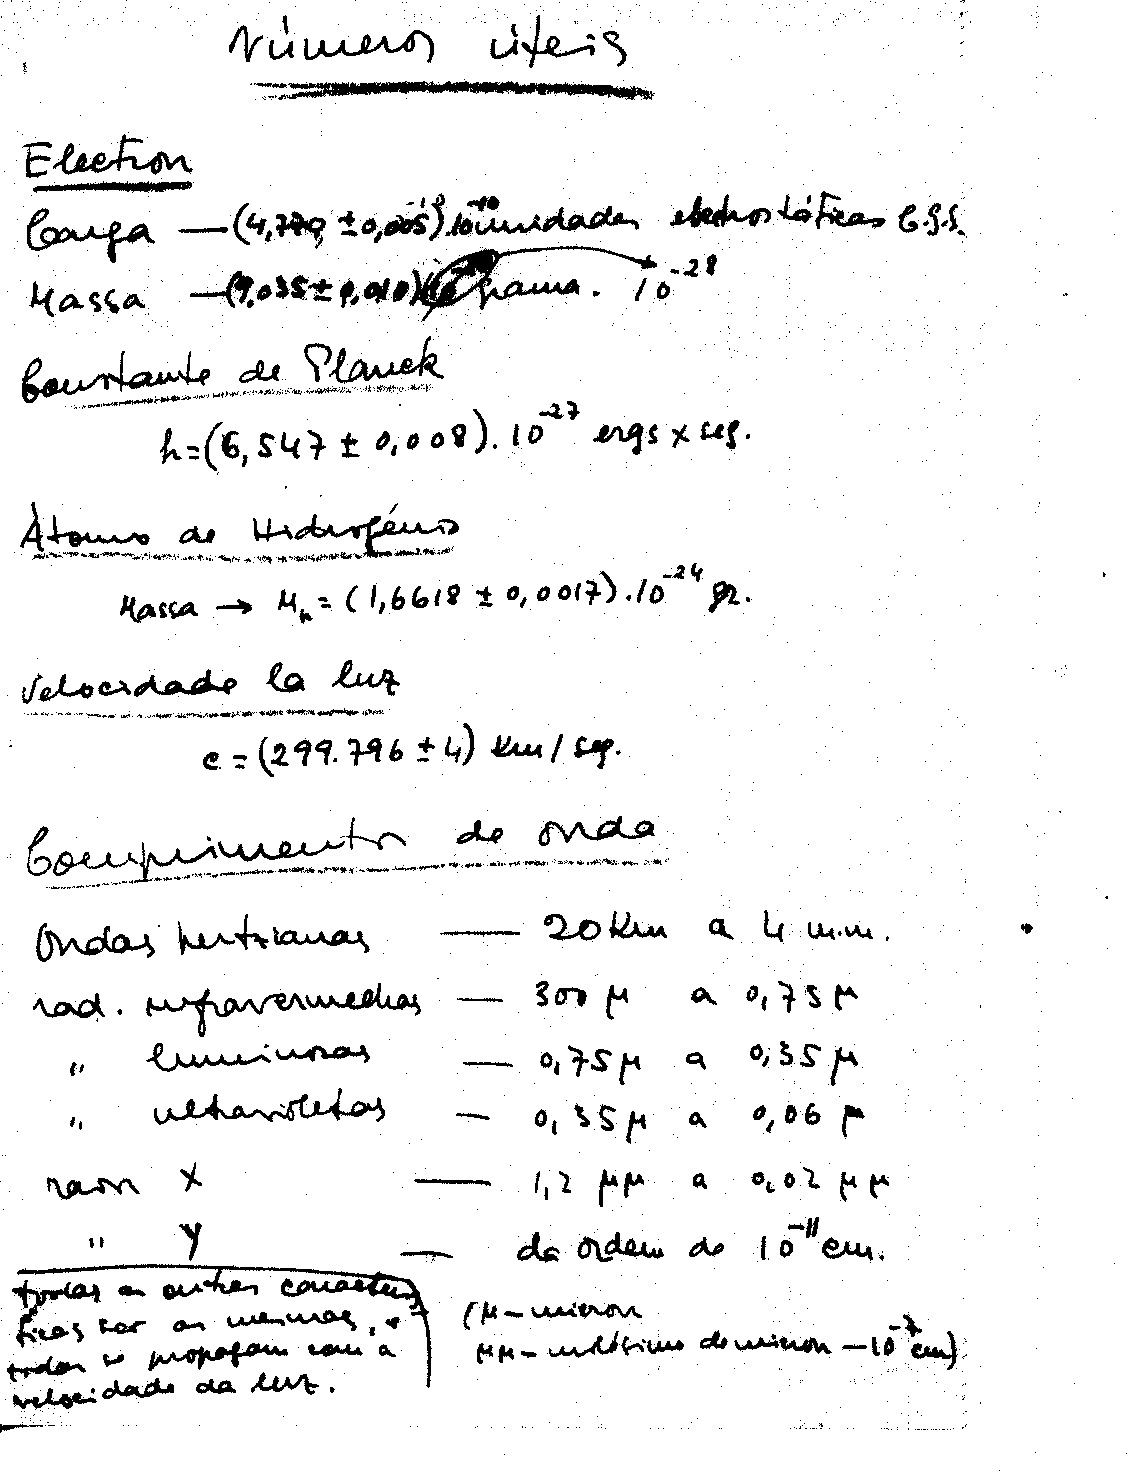 Números úteis
Electron
Carga — (4,770 ± 0,005) 10^-10 unidades electrostáticas C.G.S.
Massa — (9,035 ± 0,010) grama. 10^-28
Constante de Planck
h = (6,547 ± 0,008) . 10^-27 ergs x seg.
Átomo de Hidrogénio
Massa → M_h = (1,6618 ± 0,0017) . 10^-24 gr.
Velocidade la luz
c = (299.796 ± 4) Km / seg.
Comprimentos de onda
Ondas hertzianas — 20 Km a 4 m.m.
rad. infravermelhas — 300 μ a 0,75 μ
" luminosas — 0,75 μ a 0,35 μ
" ultravioletas — 0,35 μ a 0,06 μ
raios X — 1,2 μμ a 0,02 μμ
" γ — da ordem de 10^-11 cm.
todas as outras caracterís
ticas são as mesmas, e
todas se propagam com a
velocidade da luz.
(μ – micron
μμ – milésimo de micron — 10^-7 cm)